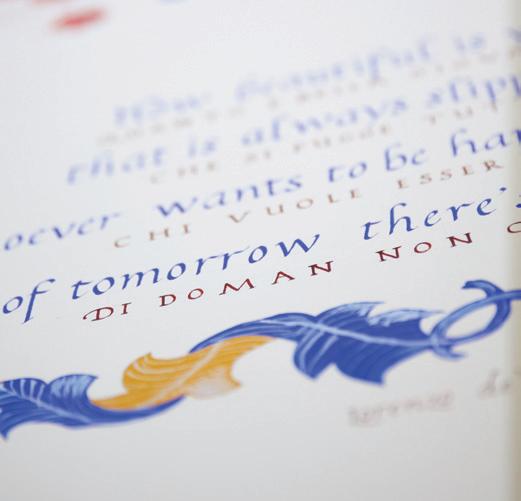 How beautiful is
that is always slipp
CHE SI FUGGE TUT
oever wants to be hap
CHI VUOLE ESSER
of tomorrow there's
DI DOMAN NON C